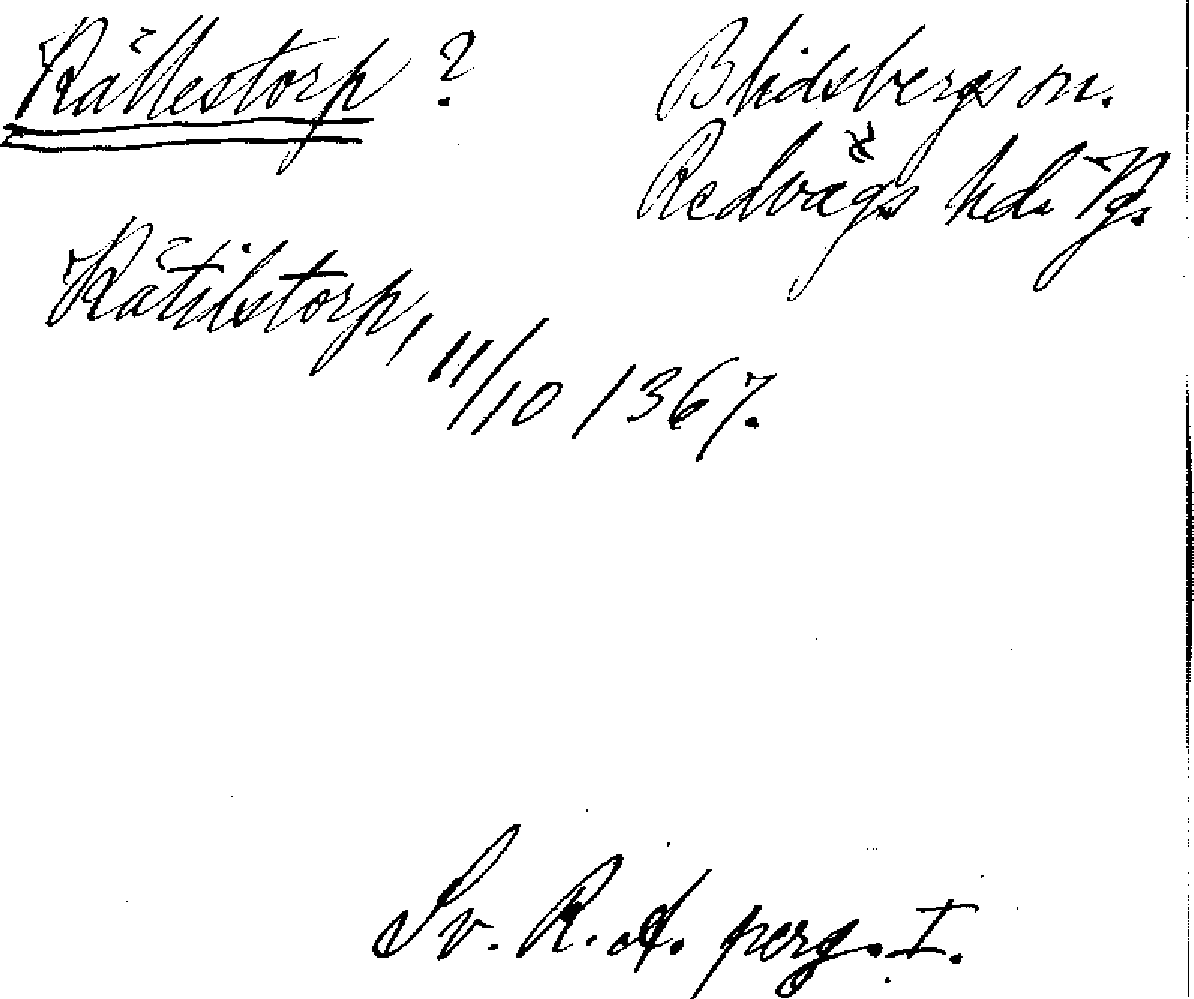 Källestorp ?
Blidsbergs sn.
Redvägs hd. Vg.
Kätilstorp, 11/10 1367.
Sv. R. A. perg. I.